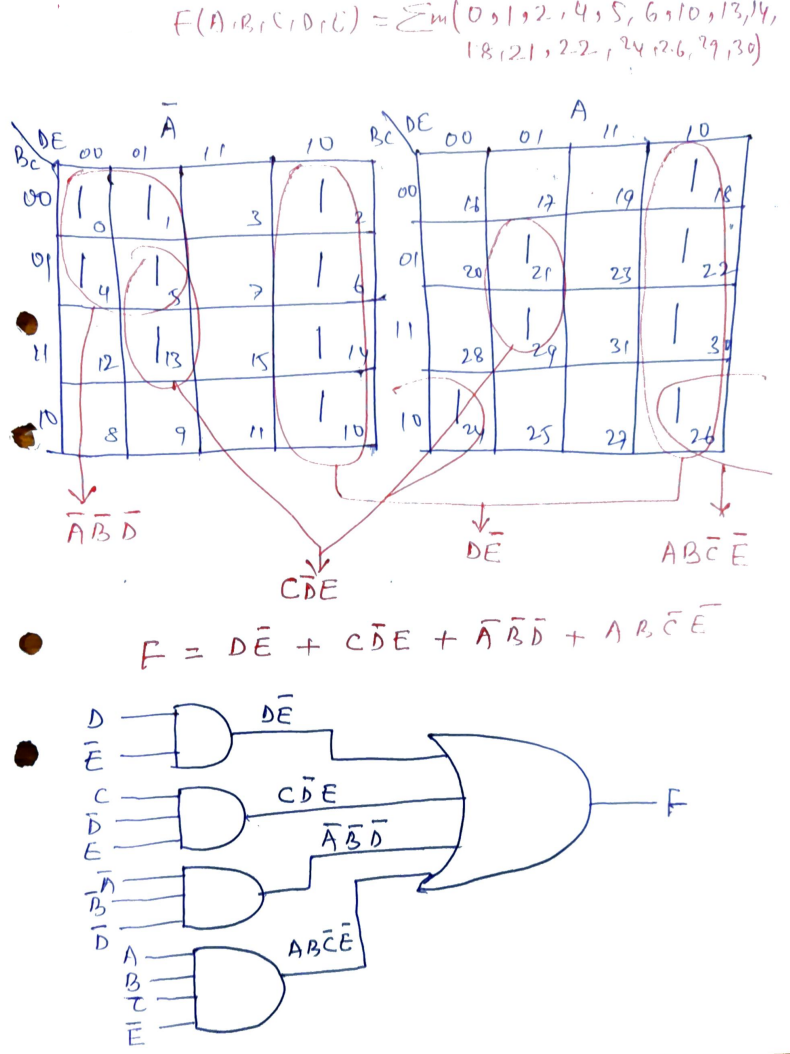 F(A,B,C,D,E) = Σm(0,1,2,4,5,6,10,13,14,
18,21,22,24,26,29,30)
DE Ā
BC 00 01 11 10
00 1 0 1 1 3 1 2
01 1 4 1 5 7 1 6
11 12 1 13 15 1 14
10 8 9 11 1 10
DE A
BC 00 01 11 10
00 16 17 19 1 18
01 20 1 21 23 1 22
11 28 1 29 31 1 30
10 1 24 25 27 1 26
Ā B̄ D̄
C D̄ E
D Ē
A B C̄ Ē
F = D Ē + C D̄ E + Ā B̄ D̄ + A B C̄ Ē
D
Ē
D Ē
C
D̄
E
C D̄ E
Ā
B̄
D̄
Ā B̄ D̄
A
B
C̄
Ē
A B C̄ Ē
F